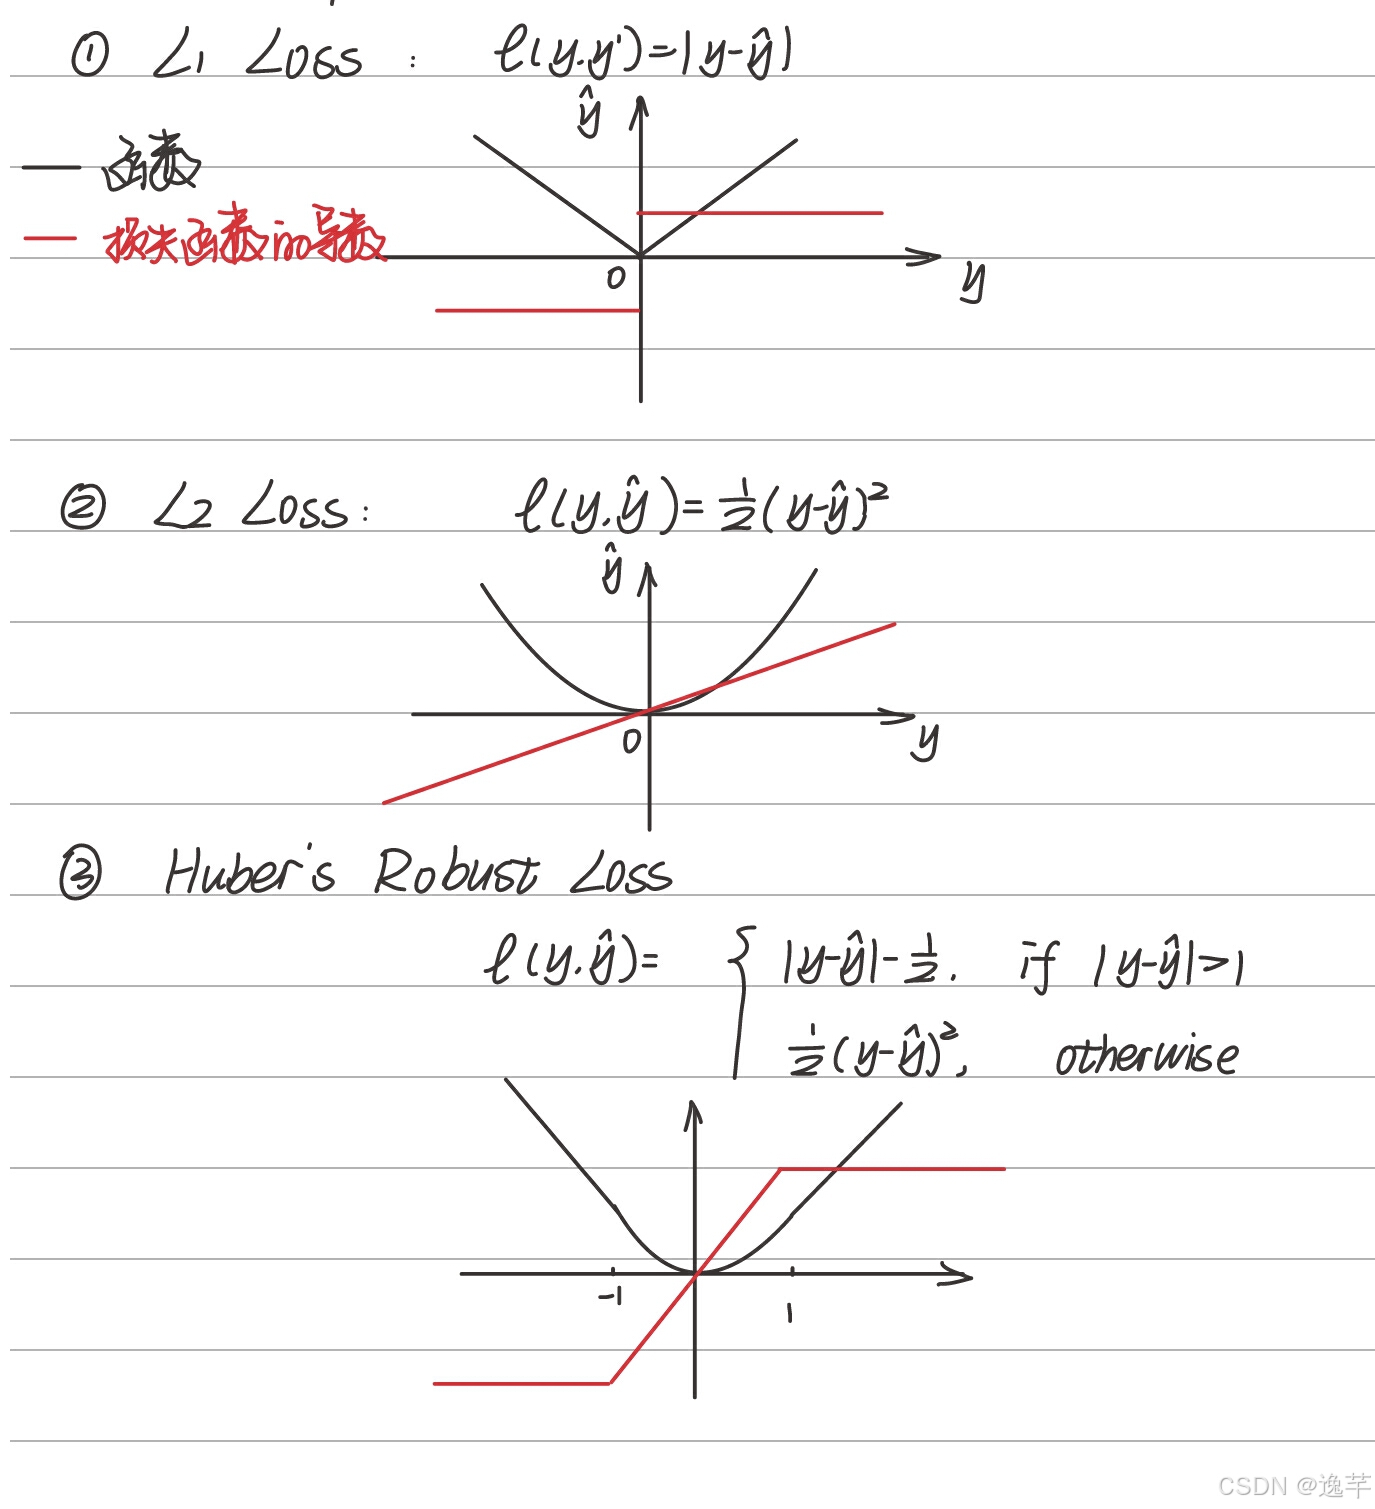 ① L1 Loss : ℓ(y,y')=|y-ŷ|
ŷ
函数
损失函数的导数
0
y
② L2 Loss: ℓ(y,ŷ)=½(y-ŷ)²
ŷ
0
y
③ Huber's Robust Loss
ℓ(y,ŷ)= { |y-ŷ|-½, if |y-ŷ|>1
½(y-ŷ)², otherwise
-1
1
CSDN @逸芊